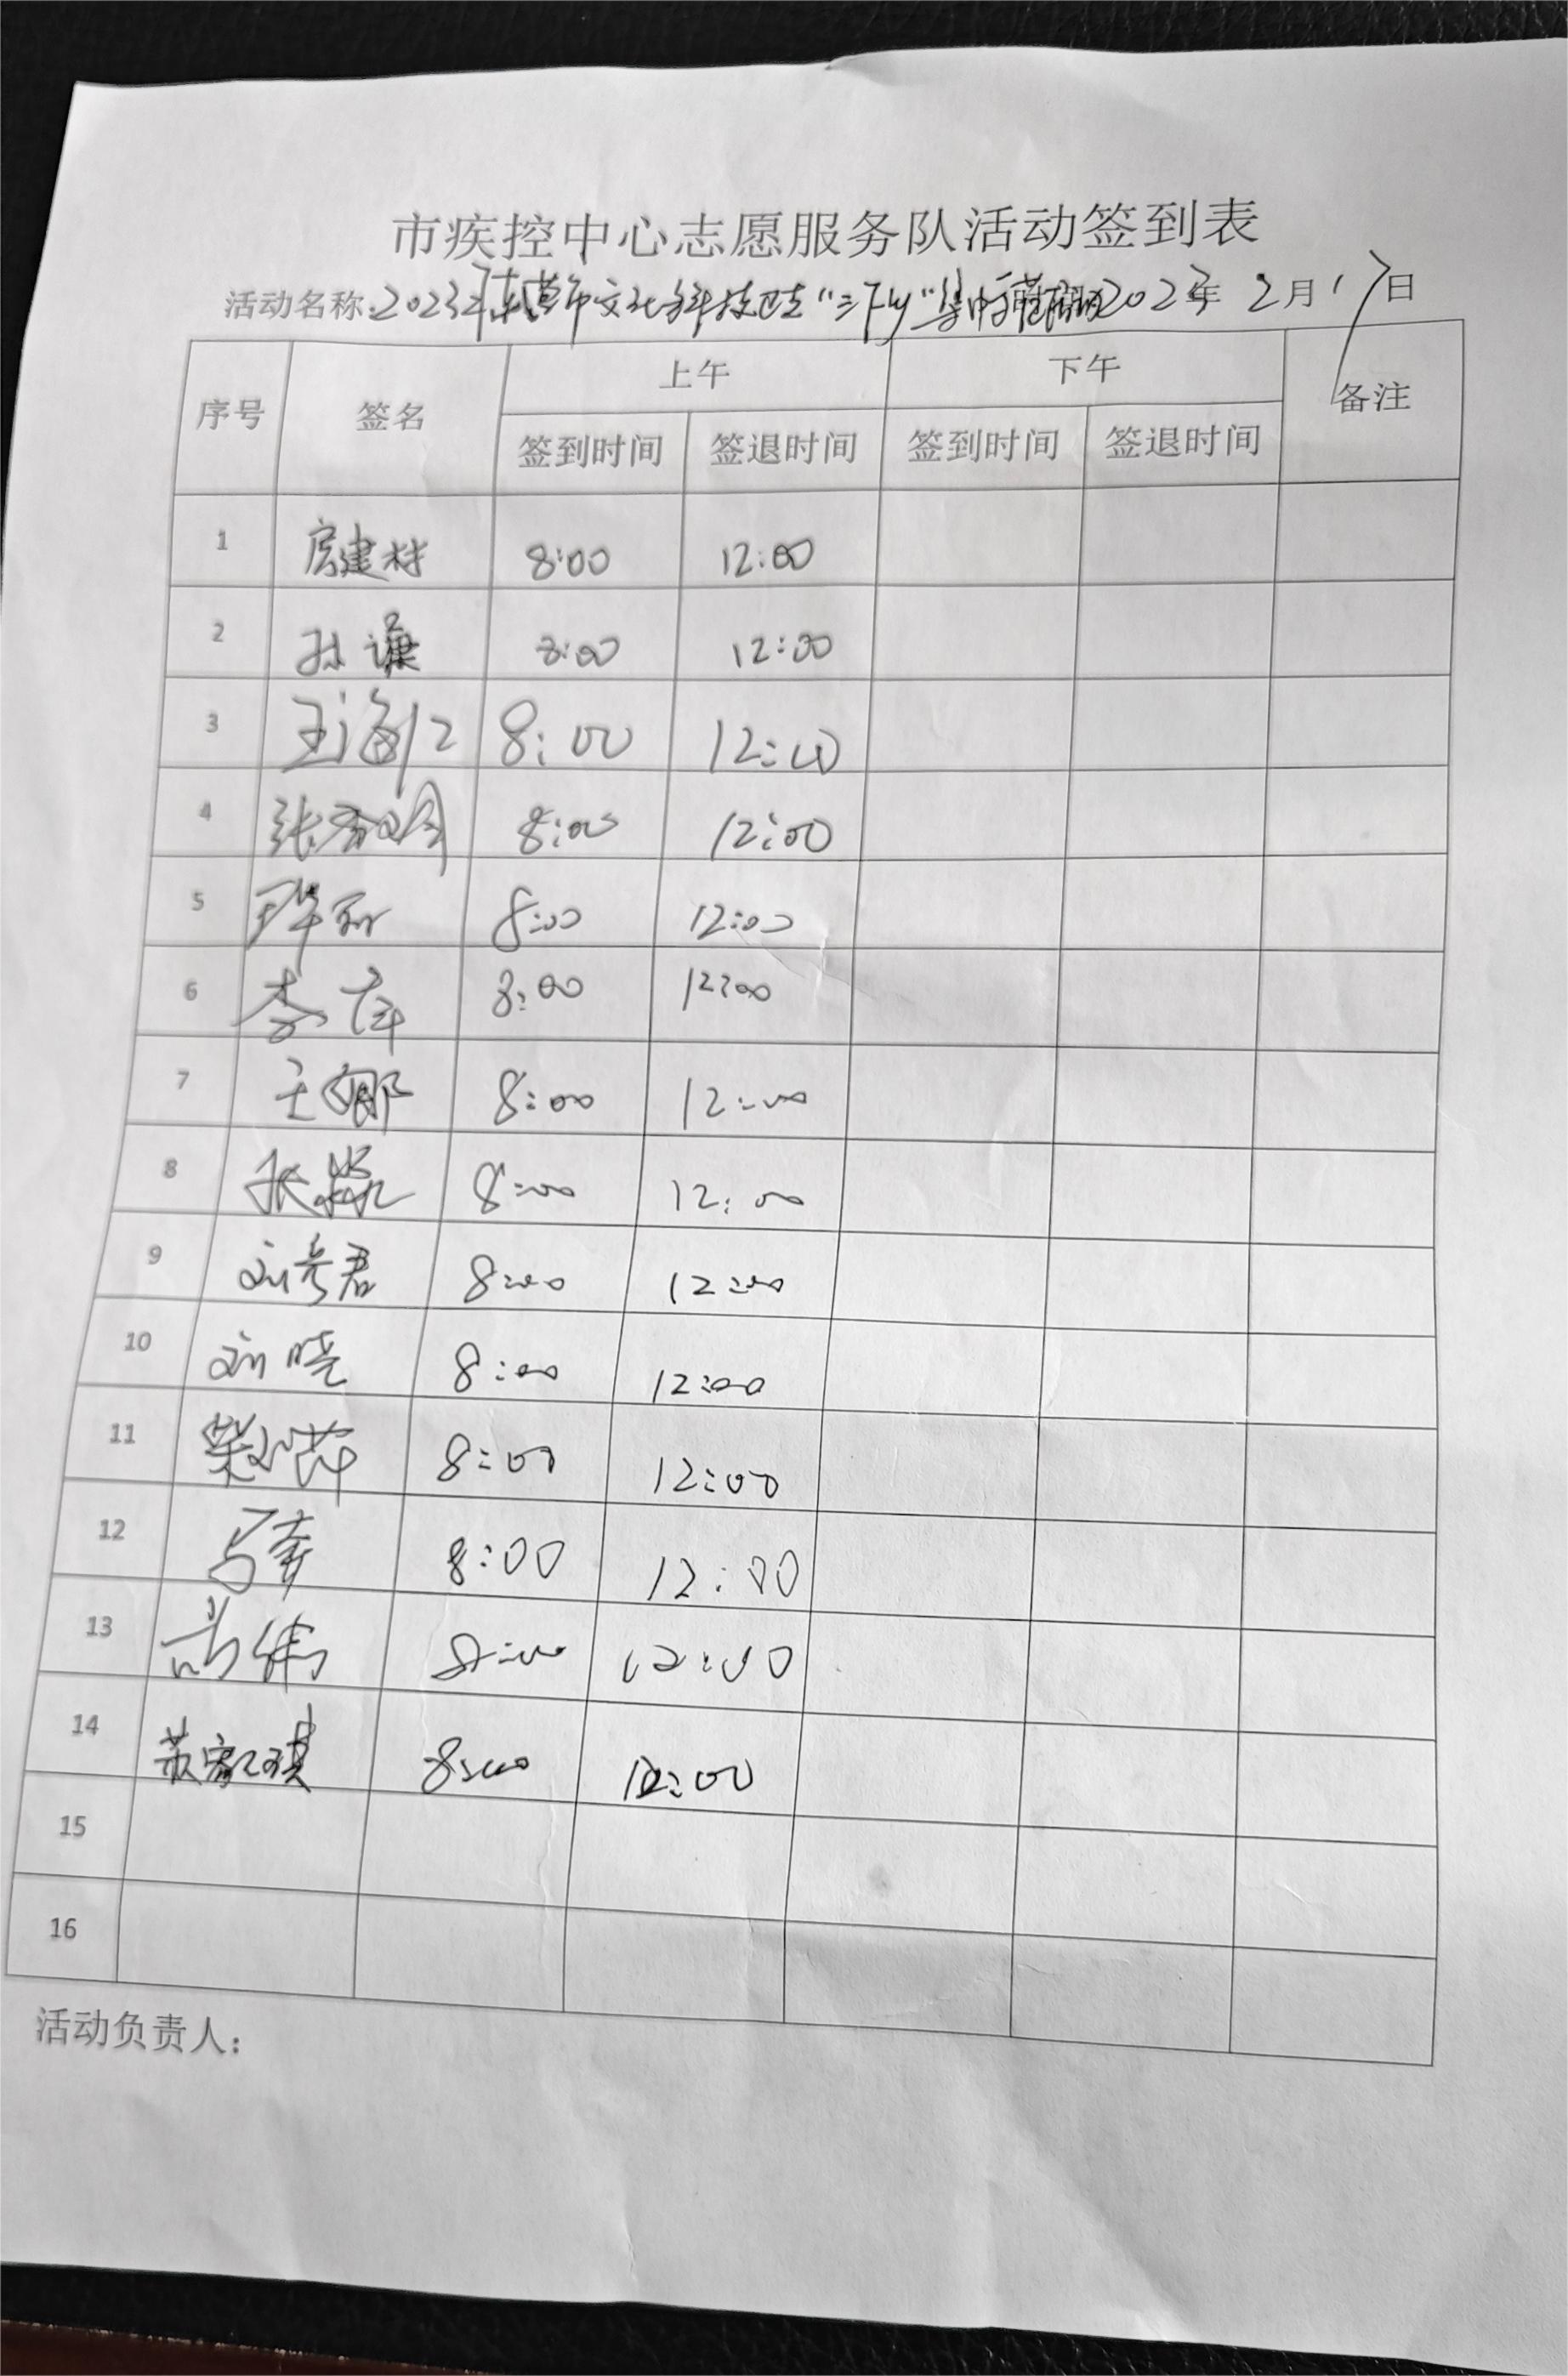 市疾控中心志愿服务队活动签到表
活动名称:2023年莱芜市文化科技卫生“三下乡”集中 2023年 2月17日
序号 签名 上午 下午 备注
签到时间 签退时间 签到时间 签退时间
1 房建村 8:00 12:00
2 孙谦 8:00 12:00
3 王海仁 8:00 12:00
4 张 8:00 12:00
5 8:00 12:00
6 李萍 8:00 12:00
7 王娜 8:00 12:00
8 张 8:00 12:00
9 刘君 8:00 12:00
10 刘晓 8:00 12:00
11 柴小萍 8:00 12:00
12 马奔 8:00 12:00
13 尚伟 8:00 12:00
14 苏家琪 8:00 12:00
15
16
活动负责人: